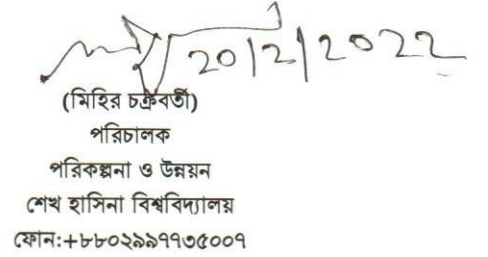 20/2/2022
(মিহির চক্রবর্তী)
পরিচালক
পরিকল্পনা ও উন্নয়ন
শেখ হাসিনা বিশ্ববিদ্যালয়
ফোন:+৮৮০২৯৯৭৭৩৫০০৭